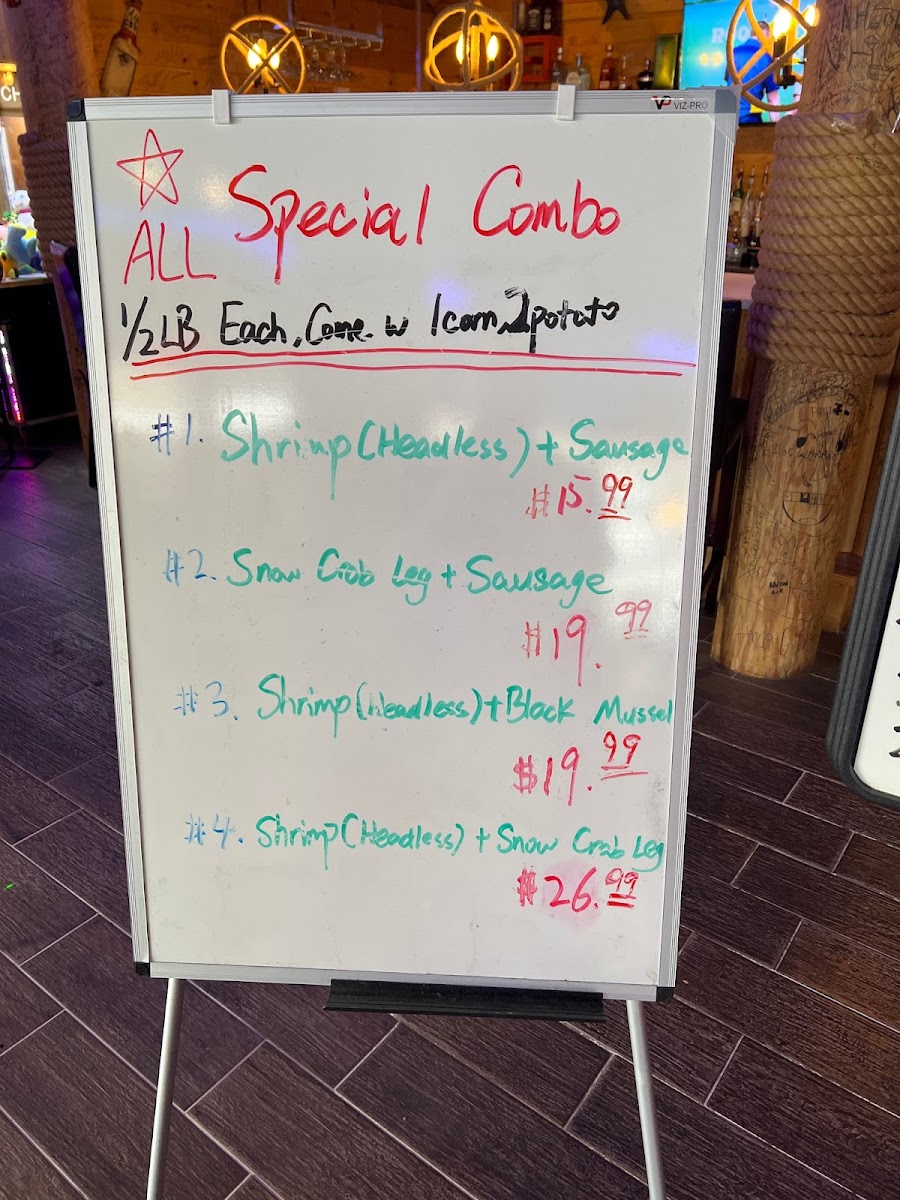 VP VIZ-PRO
☆ Special Combo
ALL
1/2 LB Each, Come. w 1 corn, 1 potato
#1. Shrimp (Headless) + Sausage
$15.99
#2. Snow Crab Leg + Sausage
$19.99
#3. Shrimp (Headless) + Black Mussel
$19.99
#4. Shrimp (Headless) + Snow Crab Leg
$26.99
CH